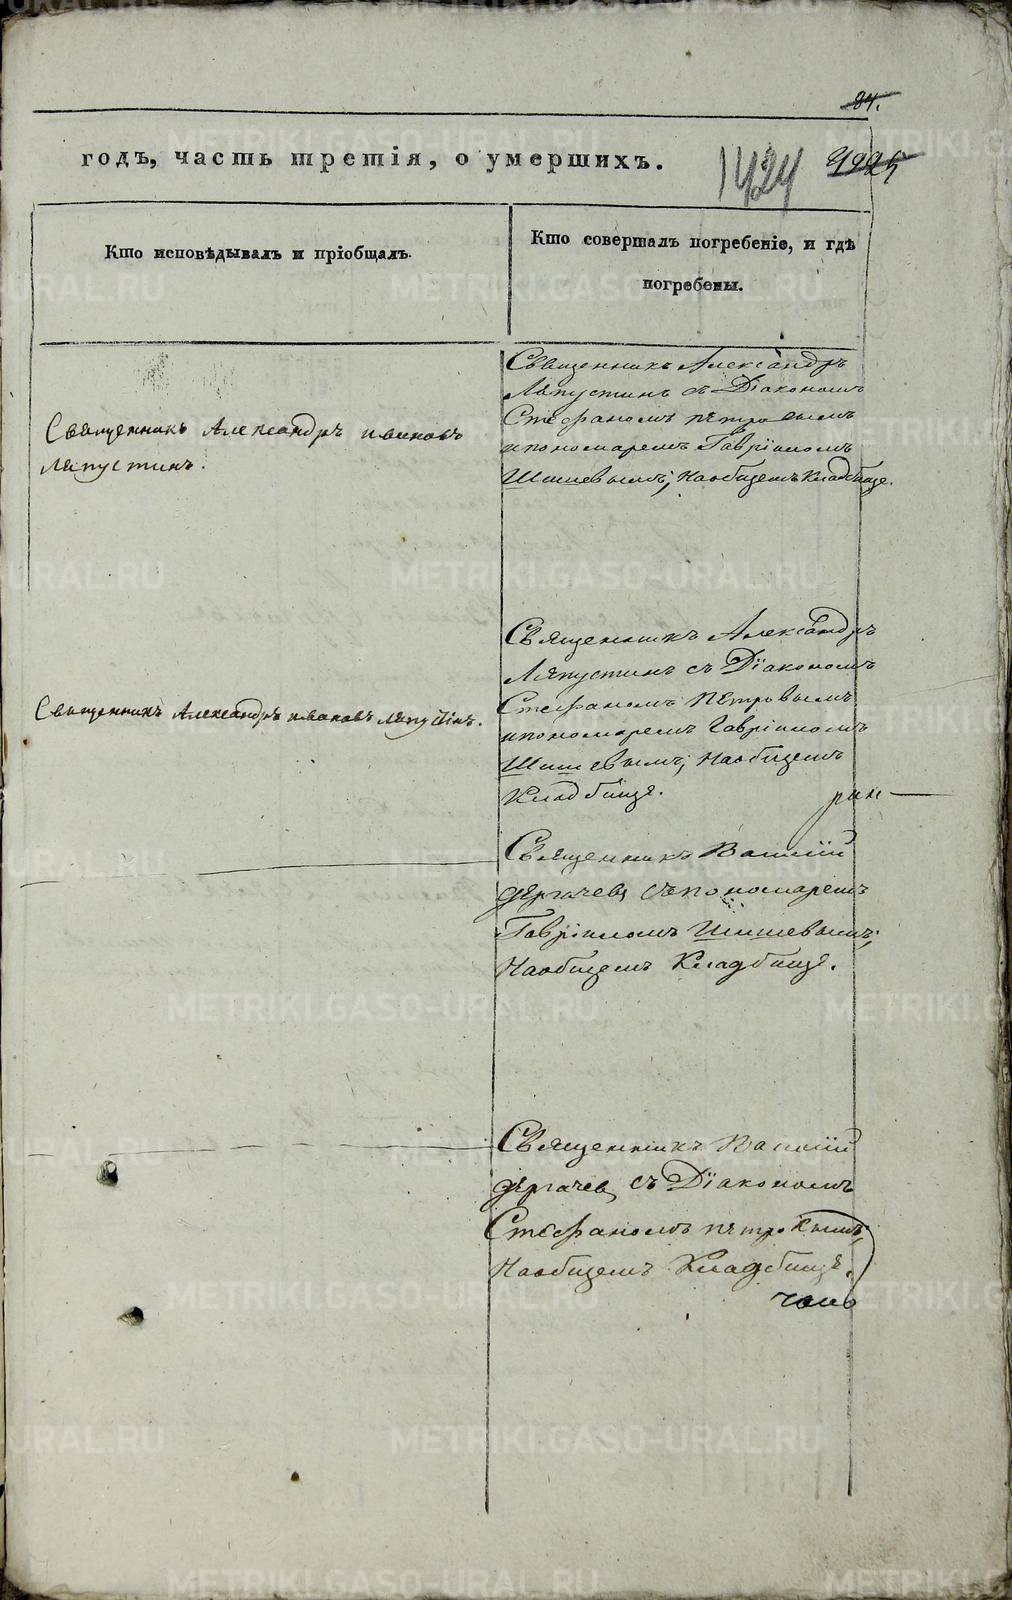 84.
годъ, часть третія, о умершихъ.
1424
Кто исповѣдывалъ и пріобщалъ.
Кто совершалъ погребеніе, и гдѣ
погребены.
Священникъ Александръ Иваковъ
Ляпустинъ.
Священникъ Александръ
Ляпустинъ съ Діакономъ
Стефаномъ Пѣтровымъ
и пономаремъ Гавріиломъ
Шишевымъ, На общемъ Кладбище.
Священникъ Александръ Иваковъ Ляпустинъ.
Священникъ Александръ
Ляпустинъ съ Діакономъ
Стефаномъ Пѣтровымъ
и пономаремъ Гавріиломъ
Шишевымъ, На общемъ
Кладбище.
Священникъ Василій
Дергачевъ съ пономаремъ
Гавріиломъ Шишевымъ,
На общемъ Кладбище.
Священникъ Василій
Дергачевъ съ Діакономъ
Стефаномъ Пѣтровымъ,
На общемъ Кладбище.
METRIKI.GASO-URAL.RU